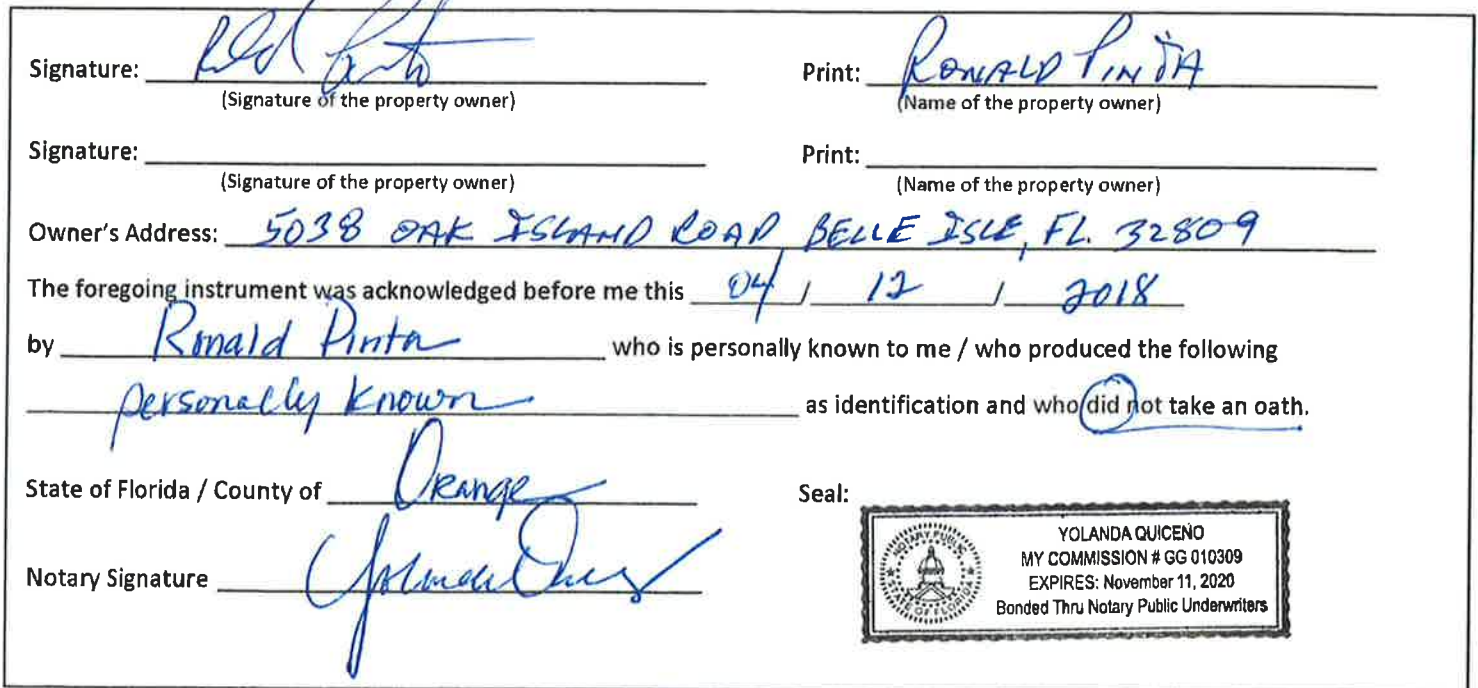 Signature: Print: RONALD PINTA
(Signature of the property owner) (Name of the property owner)
Signature: Print:
(Signature of the property owner) (Name of the property owner)
Owner's Address: 5038 OAK ISLAND ROAD BELLE ISLE, FL. 32809
The foregoing instrument was acknowledged before me this 04 / 12 / 2018
by Ronald Pinta who is personally known to me / who produced the following
personally known as identification and who did not take an oath.
State of Florida / County of Orange Seal:
NOTARY PUBLIC
STATE OF FLORIDA
YOLANDA QUICENO
MY COMMISSION # GG 010309
EXPIRES: November 11, 2020
Bonded Thru Notary Public Underwriters
Notary Signature